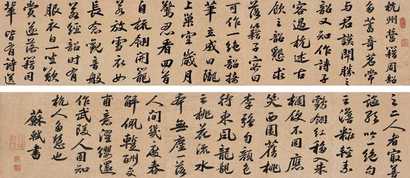 杭州營籍周韶
多蓄奇茗常
與君謨鬥勝之
韶又知作詩子
容過杭述古
落籍子容曰
可作一絕韶援
筆立成曰隴
上巢空歲月
驚忍看回首
自梳翎開籠
若放雪衣女
長念觀音般
若經韶時有
服衣白一坐嗟
嘆遂落籍同
輩皆有詩送
之二人者最善
一絕句
云淡妝輕素
鶴翎紅移入朱
欄便不同應
笑西園舊桃
李強勻顏色
待東風龍靚
云桃花流水
本無塵一落
人間幾度春
解佩暫酬交
甫意濯纓還
作武陵人固知
杭人多慧也
蘇軾書